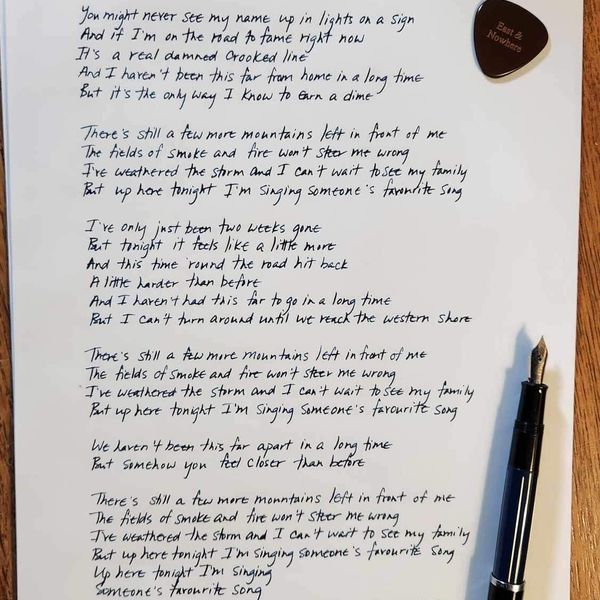 You might never see my name up in lights on a sign
And if I'm on the road to fame right now
It's a real damned crooked line
And I haven't been this far from home in a long time
But it's the only way I know to earn a dime
There's still a few more mountains left in front of me
The fields of smoke and fire won't steer me wrong
I've weathered the storm and I can't wait to see my family
But up here tonight I'm singing someone's favourite song
I've only just been two weeks gone
But tonight it feels like a little more
And this time 'round the road hit back
A little harder than before
And I haven't had this far to go in a long time
But I can't turn around until we reach the western shore
There's still a few more mountains left in front of me
The fields of smoke and fire won't steer me wrong
I've weathered the storm and I can't wait to see my family
But up here tonight I'm singing someone's favourite song
We haven't been this far apart in a long time
But somehow you feel closer than before
There's still a few more mountains left in front of me
The fields of smoke and fire won't steer me wrong
I've weathered the storm and I can't wait to see my family
But up here tonight I'm singing someone's favourite song
Up here tonight I'm singing
someone's favourite song
East &
Nowhere